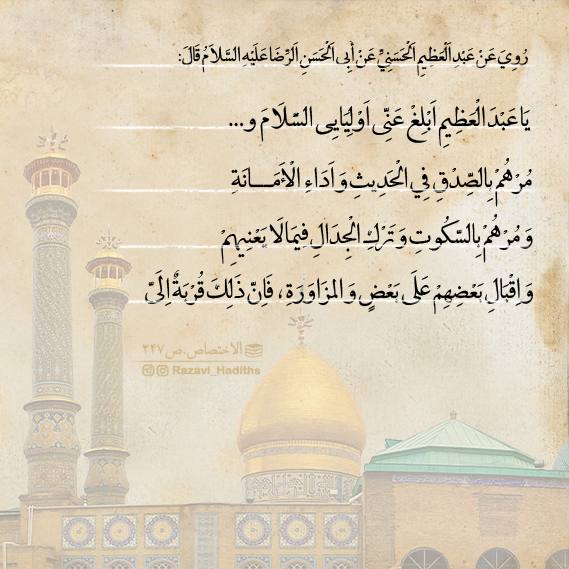 رُوِيَ عَنْ عَبْدِ الْعَظِيمِ الْحَسَنِيِّ عَنْ أَبِي الْحَسَنِ الرِّضَا عَلَيْهِ السَّلَامُ قَالَ:
يَا عَبْدَ الْعَظِيمِ اَبْلِغْ عَنِّی اَوْلِيَايِی السَّلَامَ وَ...
مُرْهُمْ بِالصِّدْقِ فِي الْحَدِيثِ وَ اَدَاءِ الْأَمَـــانَةِ
وَ مُرْهُمْ بِالسُّكُوتِ وَ تَرْكِ الْجِدَالِ فِيمَا لَا يَعْنِيهِمْ
وَ اِقْبَالِ بَعْضِهِمْ عَلَى بَعْضٍ وَ المزَاوَرَةِ، فَاِنَّ ذَلِكَ قُرْبَةٌ اِلَیَّ
الاختصاص.ص٢۴٧
Razavi_Hadiths